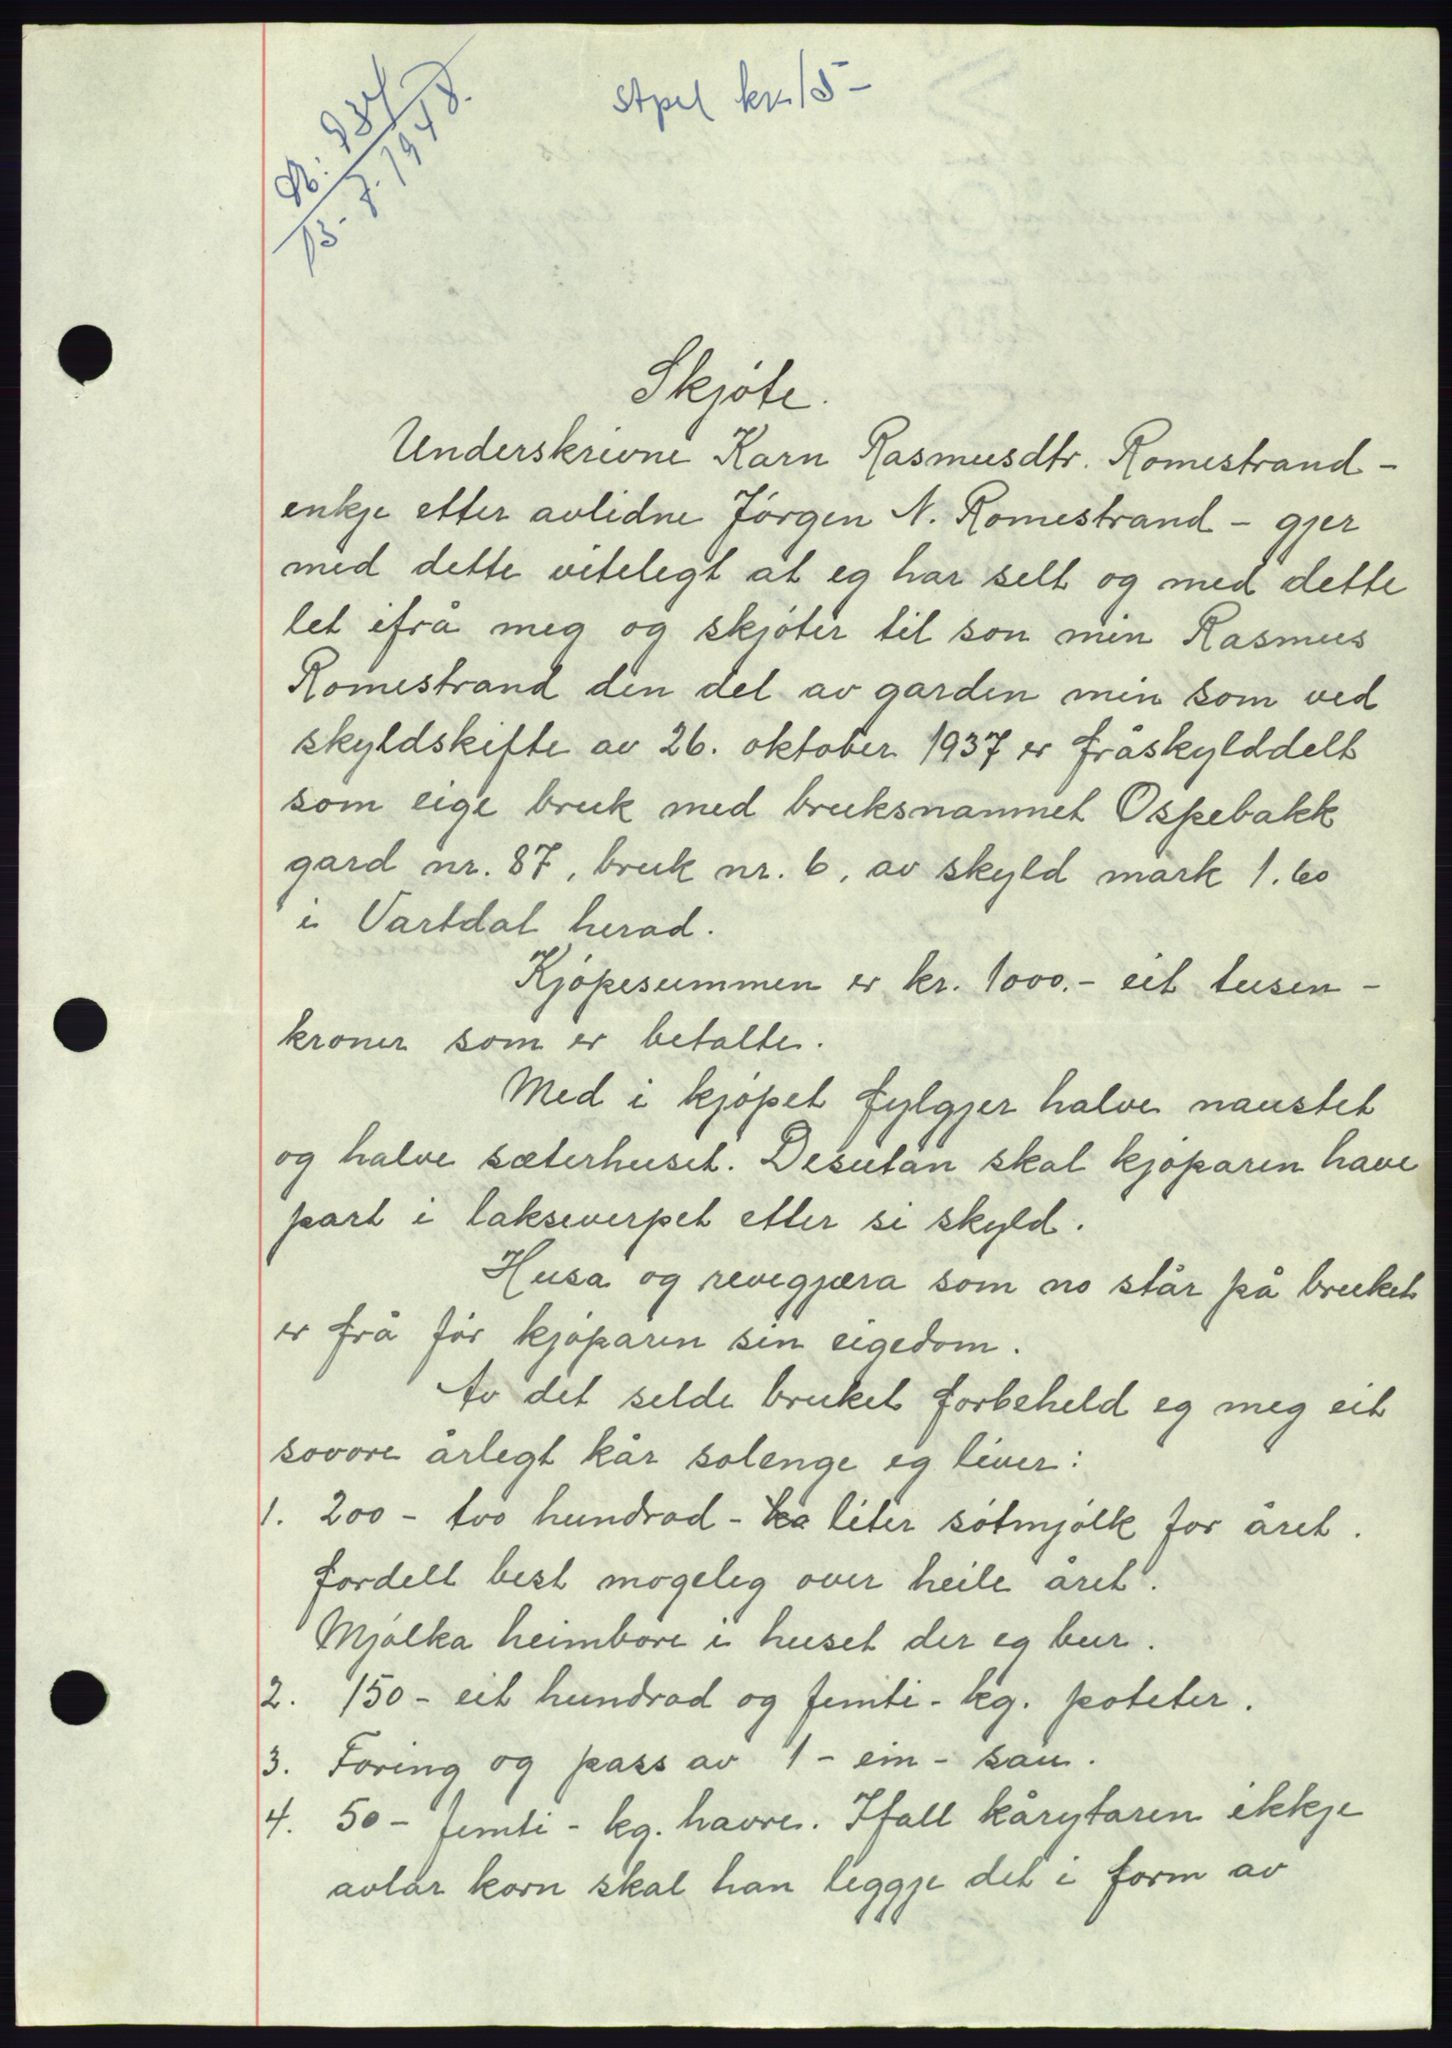 Nr: 934
13-7-1948.
Stpel kr. 15-
Skjöte.
Underskrivne Karn Rasmusdtr. Romestrand -
enkje etter avlidne Jörgen N. Romestrand - gjer
med dette vitelegt at eg har selt og med dette
let ifrå meg og skjöter til son min Rasmus
Romestrand den del av garden min som ved
skyldskifte av 26. oktober 1937 er fråskylddelt
som eige bruk med bruksnamnet Ospebakk
gard nr. 87, bruk nr. 6, av skyld mark 1.60
i Vartdal herad.
Kjöpesummen er kr. 1000.- eit tusen -
kroner som er betalte.
Med i kjöpet fylgjer halve naustet
og halve sæterhuset. Desutan skal kjöparen have
part i lakseverpet etter si skyld.
Husa og revegjæra som no står på bruket
er frå för kjöparen sin eigedom.
Av det selde bruket forbeheld eg meg eit
sovore årlegt kår solenge eg liver:
1. 200 - two hundrad - liter sötmjölk for året.
fordelt best mogeleg over heile året.
Mjölka heimbore i huset der eg bur.
2. 150 - eit hundrad og femti - kg. poteter.
3. Foring og pass av 1 - ein - sau.
4. 50 - femti - kg. havre. Ifall kårytaren ikkje
avlar korn skal han leggje det i form av